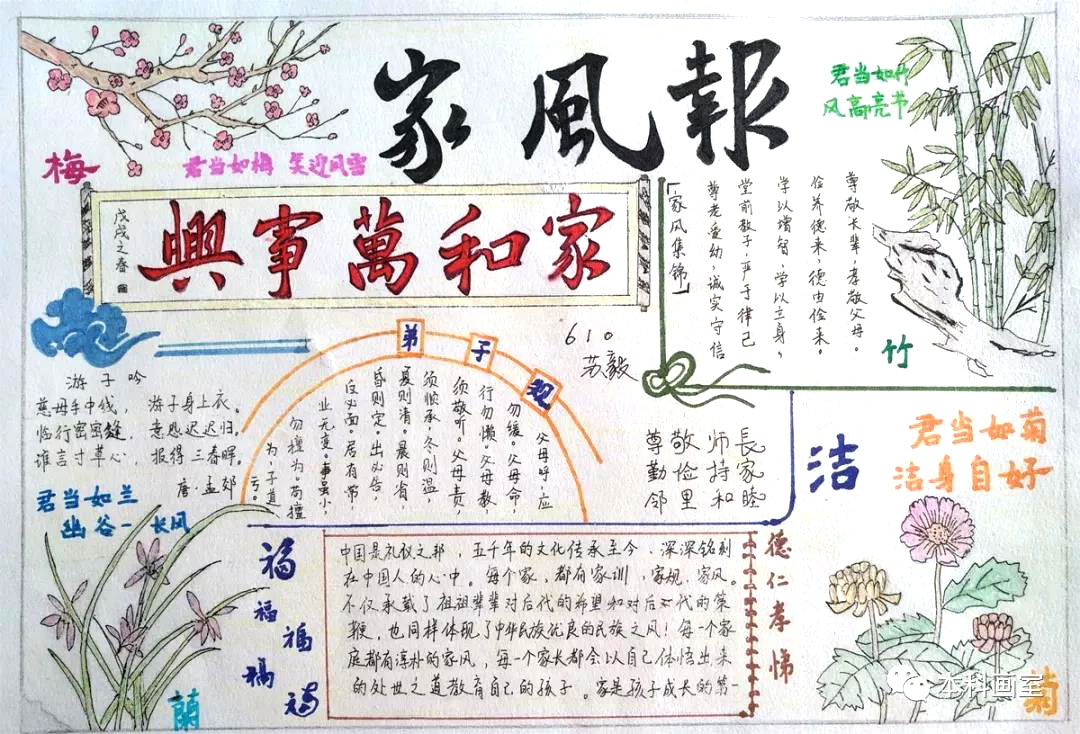 家風報
君当如竹
风高亮节
梅
君当如梅 笑迎风雪
家和萬事興
戊戌之春
「家风集锦」
尊老爱幼，诚实守信
堂前教子，严于律己
学以增智，学以立身，
俭养德来，德由俭来。
尊敬长辈，孝敬父母。
竹
610
苏毅
弟子规
父母呼，应
勿缓。父母命，
行勿懒。父母教
须敬听。父母责，
须顺承。冬则温，
夏则清。晨则省，
昏则定。出必告，
反必面。居有常，
业无变。事虽小，
勿擅为。苟擅
为，子道
亏。
游子吟
慈母手中线， 游子身上衣。
临行密密缝， 意恐迟迟归。
谁言寸草心， 报得三春晖。
唐·孟郊
尊敬师長
勤俭持家
邻里和睦
洁
君当如菊
洁身自好
君当如兰
幽谷一长风
蘭
福
福
福
福
福
中国是礼仪之邦，五千年的文化传承至今，深深铭刻
在中国人的心中。每个家，都有家训，家规，家风。
不仅承载了祖祖辈辈对后代的希望和对后代的策
鞭，也同样体现了中华民族优良的民族之风！每一个家
庭都有淳朴的家风，每一个家长都会以自己体悟出来
的处世之道教育自己的孩子。家是孩子成长的第一
德仁孝悌
菊
本科画室